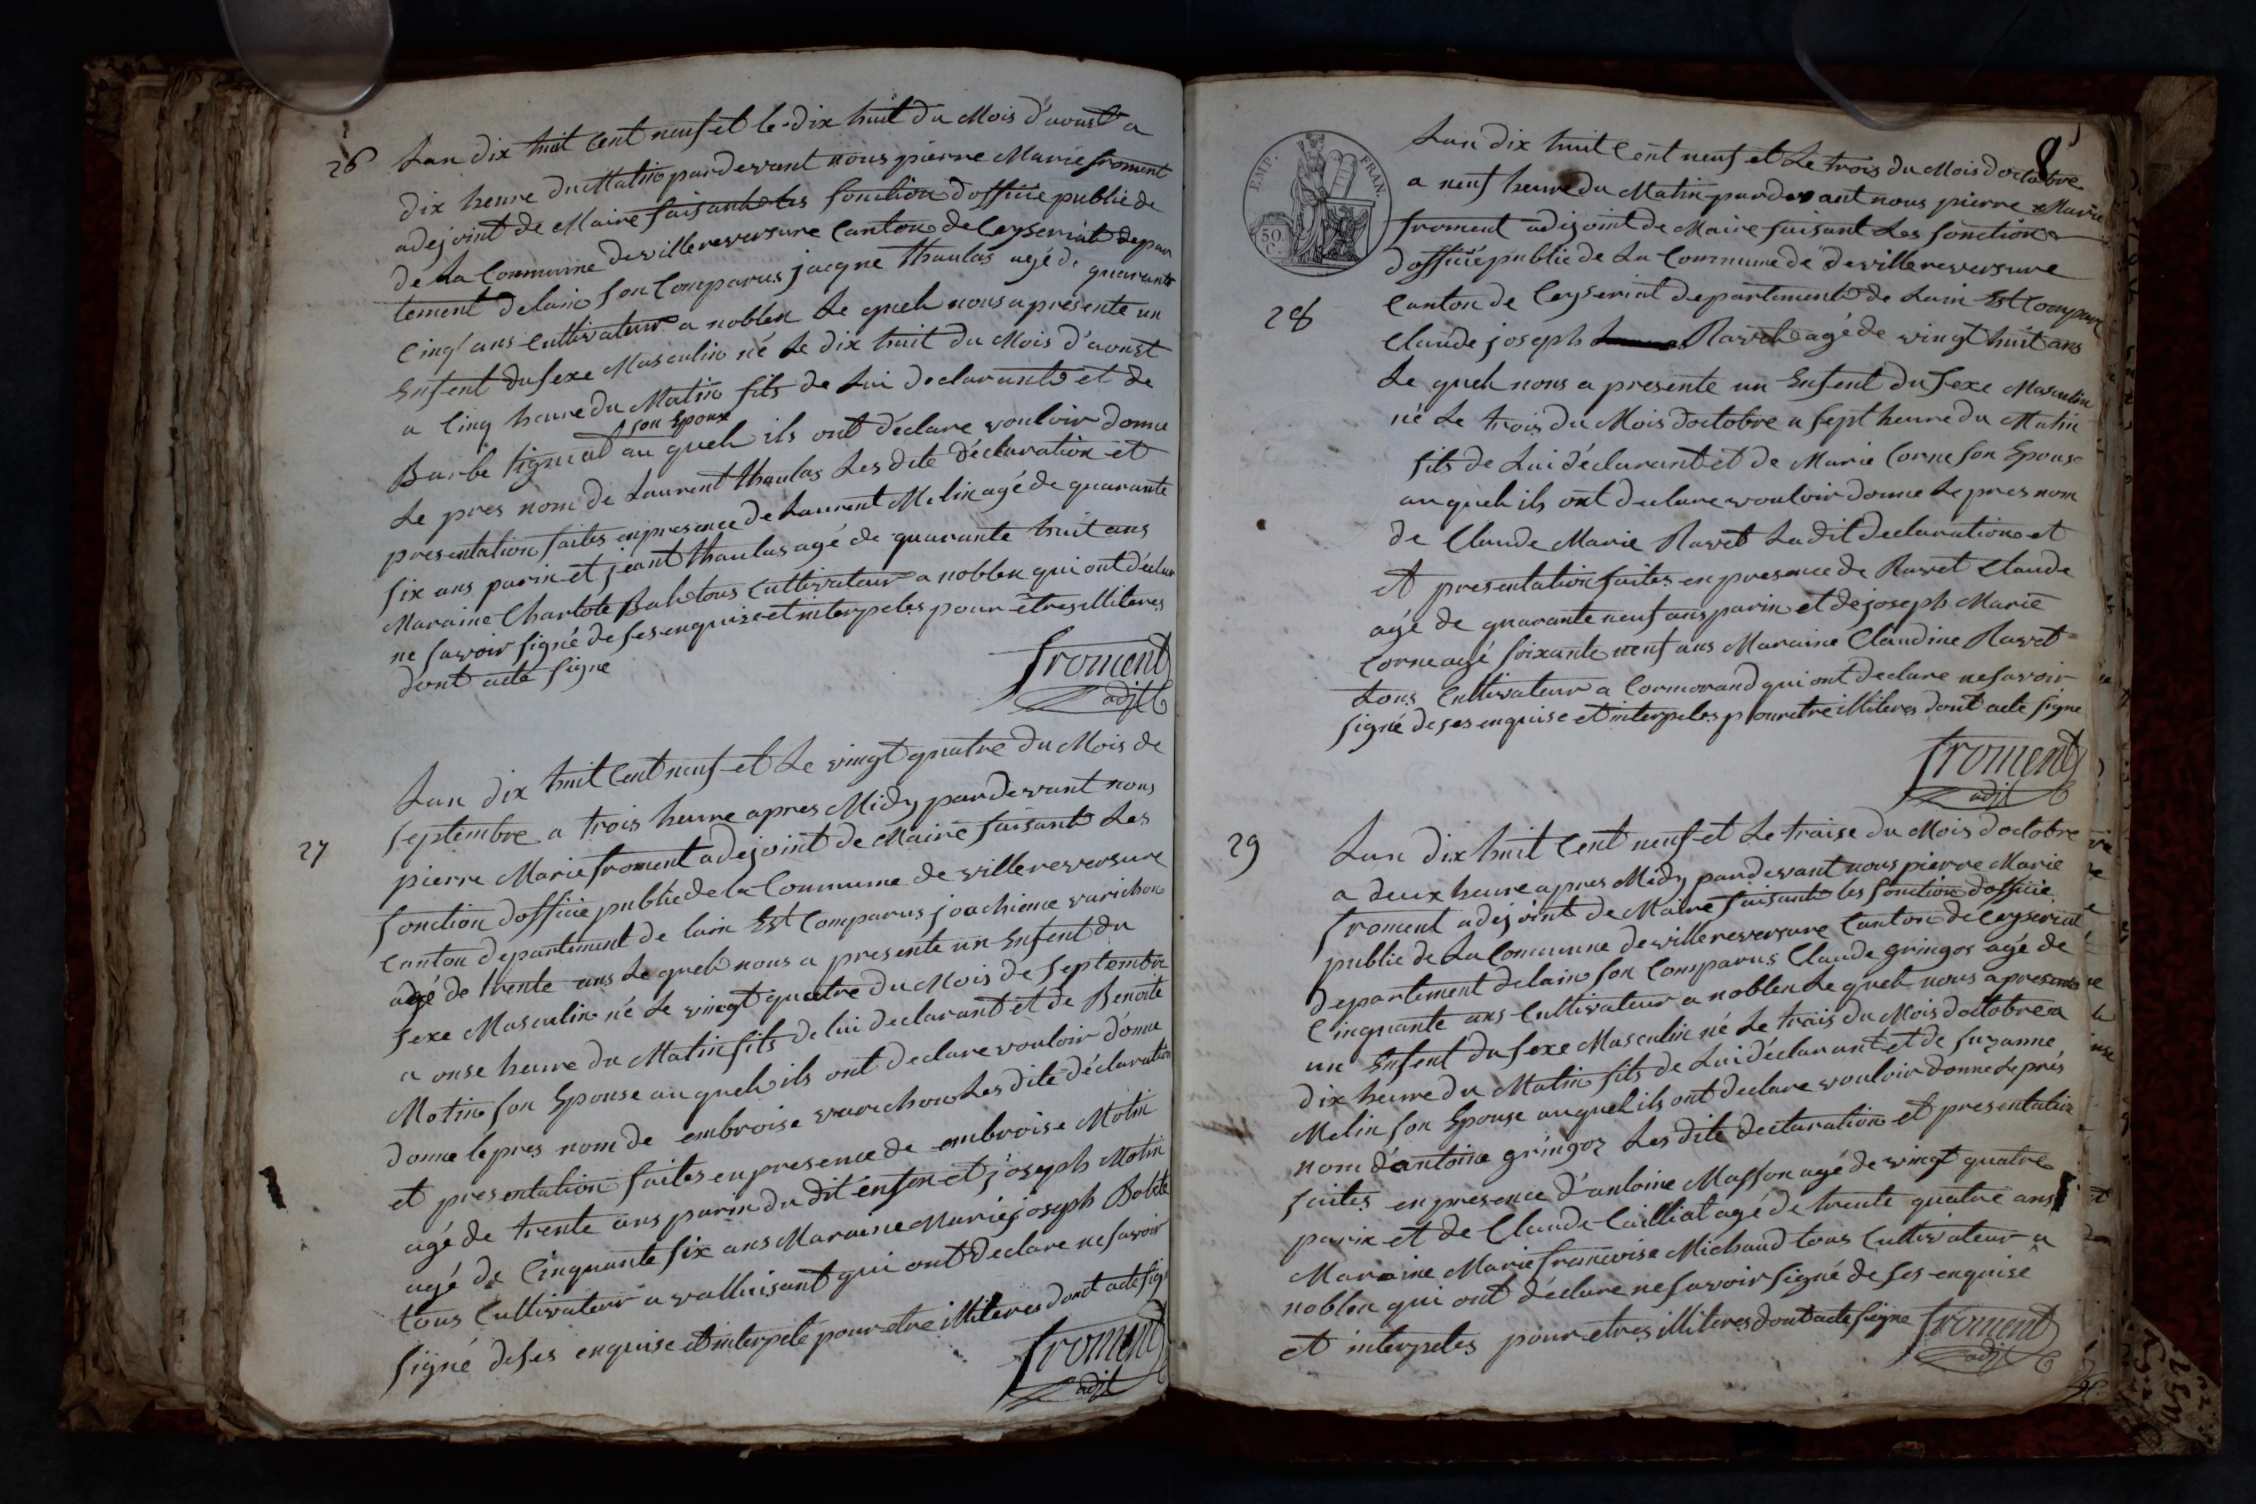 26
Lan dix huit Cent neuf et le dix huit du Mois d'aoust a
dix heure du Matin pardevant nous pierre Marie froment
adejoint de Maire faisant les fonction dofficie public de
de La Commune de villereversure Canton de Ceyseriat depar
tement delain son Comparus jacque thaulas agé de quarante
Cinq ans Cultivateur a noblen Le quel nous a presente un
Enfent du sexe Masculin né Le dix huit du Mois d'aoust
a Cinq heure du Matin fils de Lui declarant et de
son Epouse
Barbe tignat au quel ils ont déclare vouloir donne
Le pres nom de Laurent thaulas Les dite déclaration et
presentation faites en presence de Laurent Melin agé de quarante
six ans parin et jeant thaulas agé de quarante huit ans
Maraine Charlote Bal tous Cultivateur a noblen qui ont déclare
ne savoir signé de ses enquise et interpeles pour etres illiteres
dont acte signe
froment
adjt
27
Lan dix huit Cent neuf et Le vingt quatre du Mois de
septembre a trois heure apres Midy pardevant nous
pierre Marie froment adejoint de Maire faisant Les
fonction dofficie public de la Commune de villereversure
Canton departement de lain Est Comparus joachime varichon
agé de trente ans Le quel nous a presente un Enfent du
sexe Masculin né Le vingt quatre du Mois de septembre
a onse heure du Matin fils de lui declarant et de Benoite
Motin son Epouse au quel ils ont declare vouloir d'onne
donne le pres nom de embroise varichon Les dite déclaration
et presentation faites en presence de embroise Motin
agé de trente ans parin du dit enfen et j'oseph Motin
agé de Cinquante six ans Maraine Marie joseph Bolite
tous Cultivateur a valluisant qui ont declare ne savoir
signé de ses enquise et interpele pour etre illiteres dont acte signe
froment
adjt
8
EMP. FRAN.
50 C.
Lan dix huit Cent neuf et Le trois du Mois doctobre
a neuf heure du Matin pardevant nous pierre Marie
froment adijoint de Maire faisant Les fonction
dofficié public de La Commune de de villereversure
28
Canton de Ceyseriat departement de Lain Est Comparu
Claude joseph Ravet agé de vingt huit ans
Le quel nous a presente un Enfent du sexe Masculin
né Le trois du Mois doctobre a sept heure du Matin
fils de Lui déclarant et de Marie Corne son Epouse
au quel ils ont declare vouloir donne Le pres nom
de Claude Marie Ravet La dit declaration et
et presentation faites en presence de Ravet Claude
agé de quarante neuf ans parin et de joseph Marie
Corne agé soixante neuf ans Maraine Claudine Ravet
tous Cultivateur a Cormorand qui ont declare ne savoir
signé de ses enquise et interpeles pour etre illiteres dont acte signe
froment
adjt
29
Lan dix huit Cent neuf et Le traise du Mois doctobre
a deux heure apres Midy pardevant nous pierre Marie
froment adejoint de Maire faisant les fonction dofficie
public de La Commune de villereversure Canton de Ceyseriat
departement delain son Comparus Claude gringoz agé de
Cinquante ans Cultivateur a noblen Le quel nous a presente
un Enfent du sexe Masculin né Le trais du Mois doctobre a
dix heure du Matin fils de Lui déclarant et de suzanne
Melin son Epouse au quel ils ont declare vouloir donne Le prés
nom d'antoine gringoz Les dite declaration et presentation
faites en presence d'antoine Masson agé de vingt quatre
parin et de Claude Cailliat agé de trente quatre ans
Maraine Marie francoise Michaud tous Cultivateur a
noblen qui ont déclare ne savoir signé de ses enquise
et interpeles pour etres illiteres dont acte signe froment
adjt